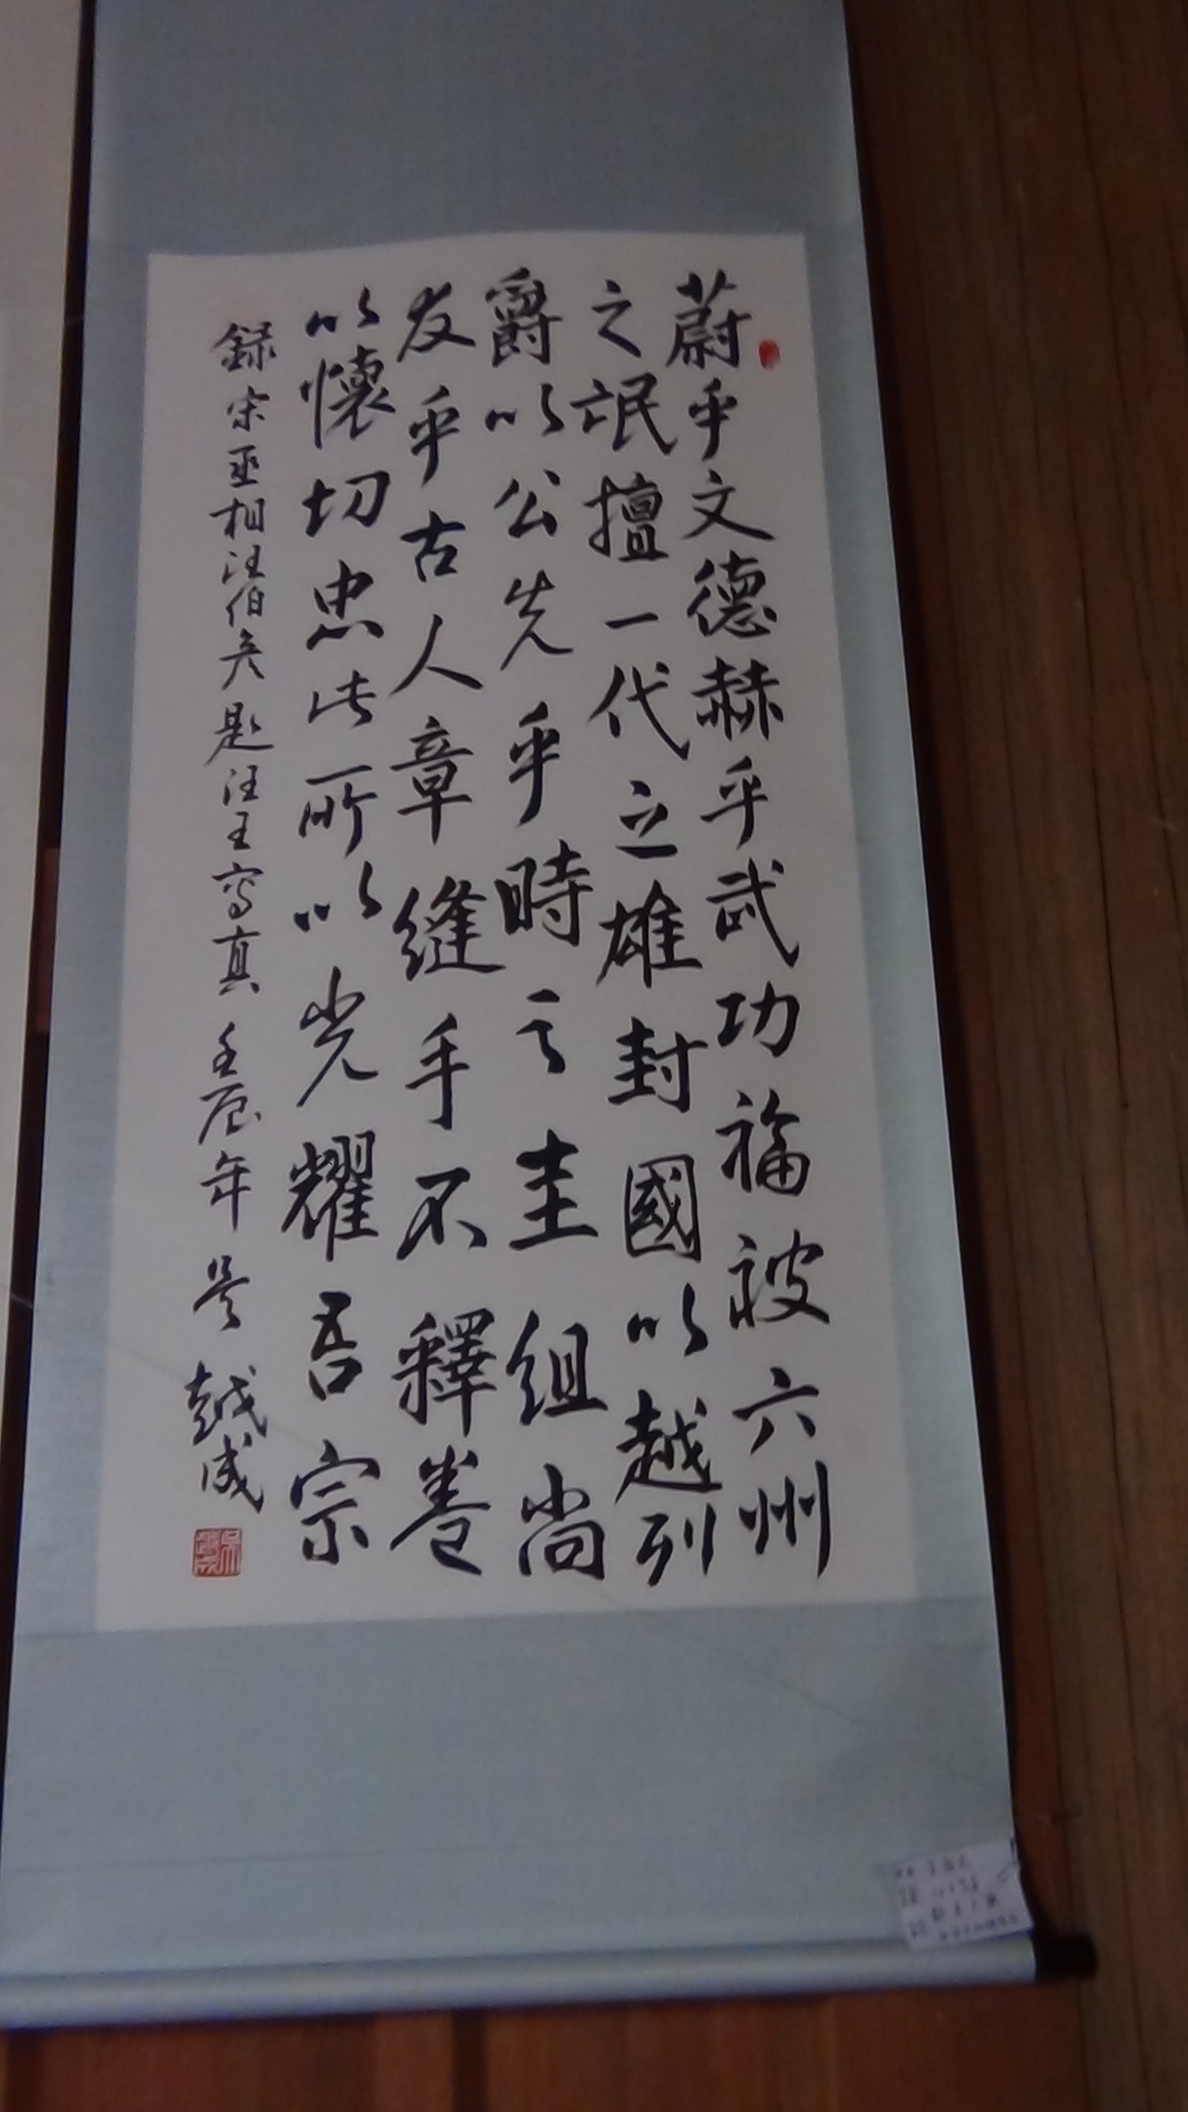 蔚乎文德赫乎武功福被六州
之氓擅一代之雄封國以越列
爵以公先乎時之圭組尚
友乎古人章縫手不釋卷
以懷切忠此所以光耀吾宗
録宋丞相汪伯彦題汪王寫真 壬辰年 吳越成